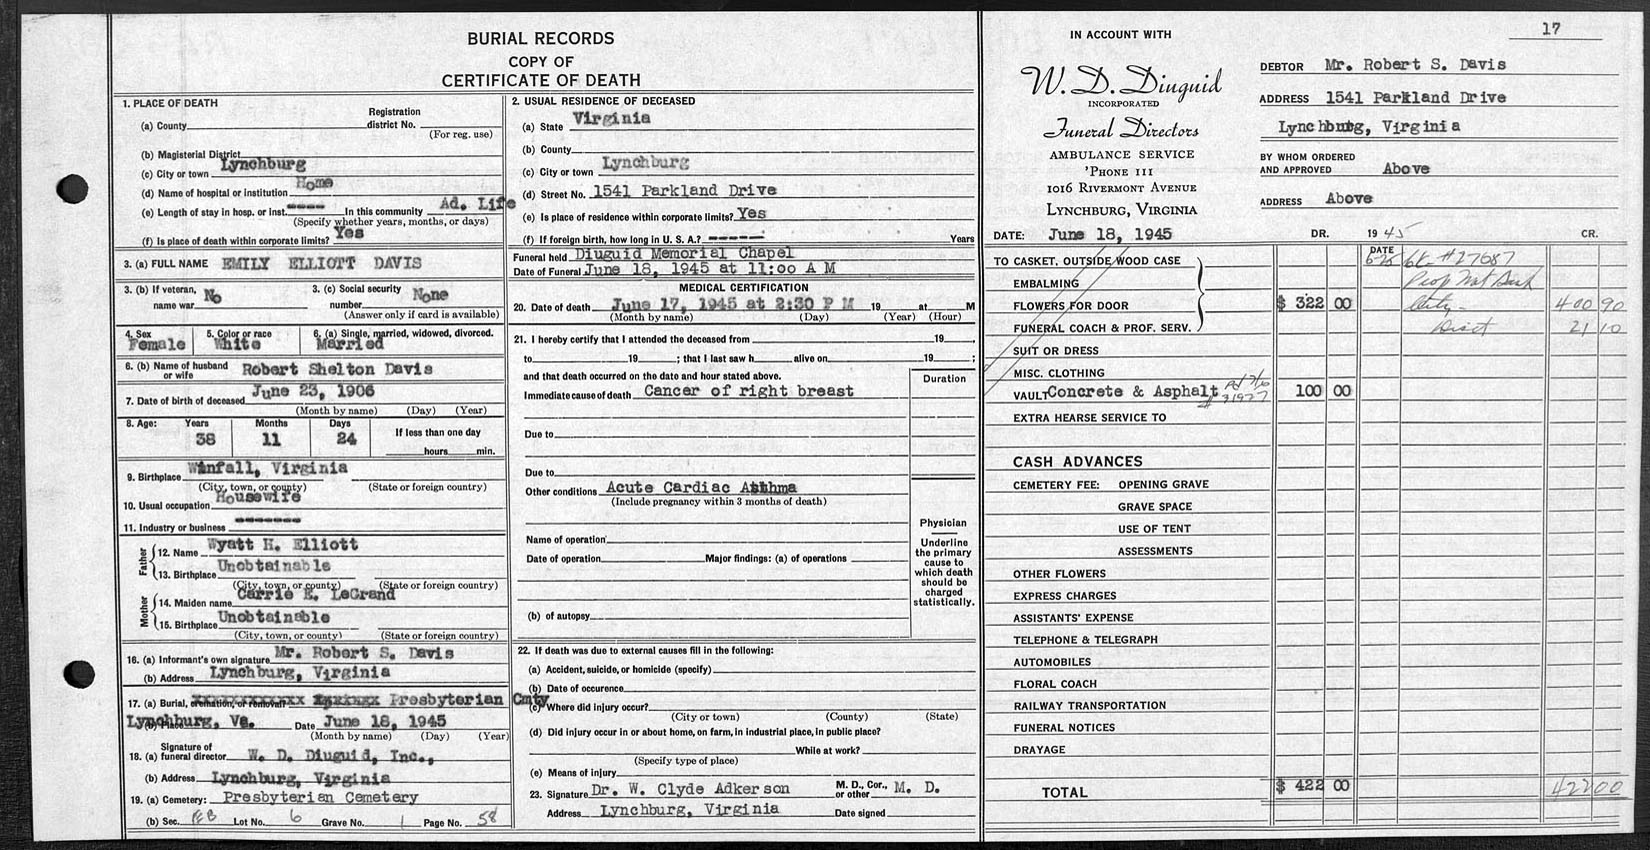 BURIAL RECORDS
COPY OF
CERTIFICATE OF DEATH
1. PLACE OF DEATH
Registration
(a) County district No.
(For reg. use)
(b) Magisterial District
(c) City or town Lynchburg
(d) Name of hospital or institution Home
(e) Length of stay in hosp. or inst. ---- In this community Ad. Life
(Specify whether years, months, or days)
(f) Is place of death within corporate limits? Yes
3. (a) FULL NAME EMILY ELLIOTT DAVIS
3. (b) If veteran, name war No
3. (c) Social security number None
(Answer only if card is available)
4. Sex Female
5. Color or race White
6. (a) Single, married, widowed, divorced. Married
6. (b) Name of husband or wife Robert Shelton Davis
7. Date of birth of deceased June 23, 1906
(Month by name) (Day) (Year)
8. Age: Years Months Days
38 11 24
If less than one day
hours min.
9. Birthplace Winfall, Virginia
(City, town, or county) (State or foreign country)
10. Usual occupation Housewife
11. Industry or business -------
Father
12. Name Wyatt H. Elliott
13. Birthplace Unobtainable
(City, town, or county) (State or foreign country)
Mother
14. Maiden name Carrie E. LeGrand
15. Birthplace Unobtainable
(City, town, or county) (State or foreign country)
16. (a) Informant's own signature Mr. Robert S. Davis
(b) Address Lynchburg, Virginia
17. (a) Burial, cremation, or removal? Presbyterian Cmty
(b) Place Lynchburg, Va. Date June 18, 1945
(Month by name) (Day) (Year)
Signature of
18. (a) funeral director W. D. Diuguid, Inc.,
(b) Address Lynchburg, Virginia
19. (a) Cemetery: Presbyterian Cemetery
(b) Sec. Lot No. 6 Grave No. 1 Page No. 58
2. USUAL RESIDENCE OF DECEASED
(a) State Virginia
(b) County
(c) City or town Lynchburg
(d) Street No. 1541 Parkland Drive
(e) Is place of residence within corporate limits? Yes
(f) If foreign birth, how long in U. S. A.? ----- Years
Funeral held Diuguid Memorial Chapel
Date of Funeral June 18, 1945 at 11:00 A M
MEDICAL CERTIFICATION
20. Date of death June 17, 1945 at 2:30 P M 19 at M
(Month by name) (Day) (Year) (Hour)
21. I hereby certify that I attended the deceased from 19
to 19 ; that I last saw h alive on 19 ;
and that death occurred on the date and hour stated above.
Duration
Immediate cause of death Cancer of right breast
Due to
Due to
Other conditions Acute Cardiac Asthma
(Include pregnancy within 3 months of death)
Name of operation
Date of operation Major findings: (a) of operations
(b) of autopsy
Physician
Underline
the primary
cause to
which death
should be
charged
statistically.
22. If death was due to external causes fill in the following:
(a) Accident, suicide, or homicide (specify)
(b) Date of occurence
(c) Where did injury occur?
(City or town) (County) (State)
(d) Did injury occur in or about home, on farm, in industrial place, in public place?
While at work?
(Specify type of place)
(e) Means of injury
23. Signature Dr. W. Clyde Adkerson M. D., Cor., or other M. D.
Address Lynchburg, Virginia Date signed
17
IN ACCOUNT WITH
W. D. Diuguid
INCORPORATED
Funeral Directors
AMBULANCE SERVICE
'PHONE 111
1016 RIVERMONT AVENUE
LYNCHBURG, VIRGINIA
DEBTOR Mr. Robert S. Davis
ADDRESS 1541 Parkland Drive
Lynchburg, Virginia
BY WHOM ORDERED
AND APPROVED Above
ADDRESS Above
DATE: June 18, 1945 DR. 1945 CR.
TO CASKET, OUTSIDE WOOD CASE
EMBALMING
FLOWERS FOR DOOR $ 322 00
FUNERAL COACH & PROF. SERV.
SUIT OR DRESS
MISC. CLOTHING
VAULT Concrete & Asphalt 100 00
EXTRA HEARSE SERVICE TO
DATE
6-25 #27687
400 90
Disct 21 10
CASH ADVANCES
CEMETERY FEE: OPENING GRAVE
GRAVE SPACE
USE OF TENT
ASSESSMENTS
OTHER FLOWERS
EXPRESS CHARGES
ASSISTANTS' EXPENSE
TELEPHONE & TELEGRAPH
AUTOMOBILES
FLORAL COACH
RAILWAY TRANSPORTATION
FUNERAL NOTICES
DRAYAGE
TOTAL $ 422 00 422 00